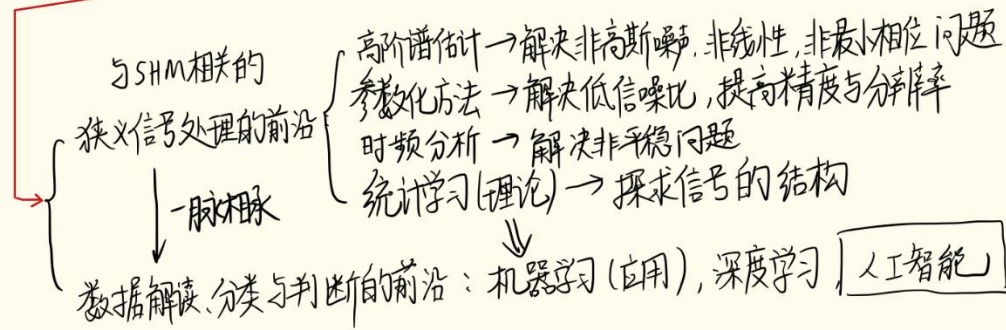 与SHM相关的
狭义信号处理的前沿
高阶谱估计→解决非高斯噪声,非线性,非最小相位问题
参数化方法→解决低信噪比,提高精度与分辨率
时频分析→解决非平稳问题
统计学习(理论)→探求信号的结构
一脉相承
数据解读、分类与判断的前沿:机器学习(应用),深度学习,人工智能